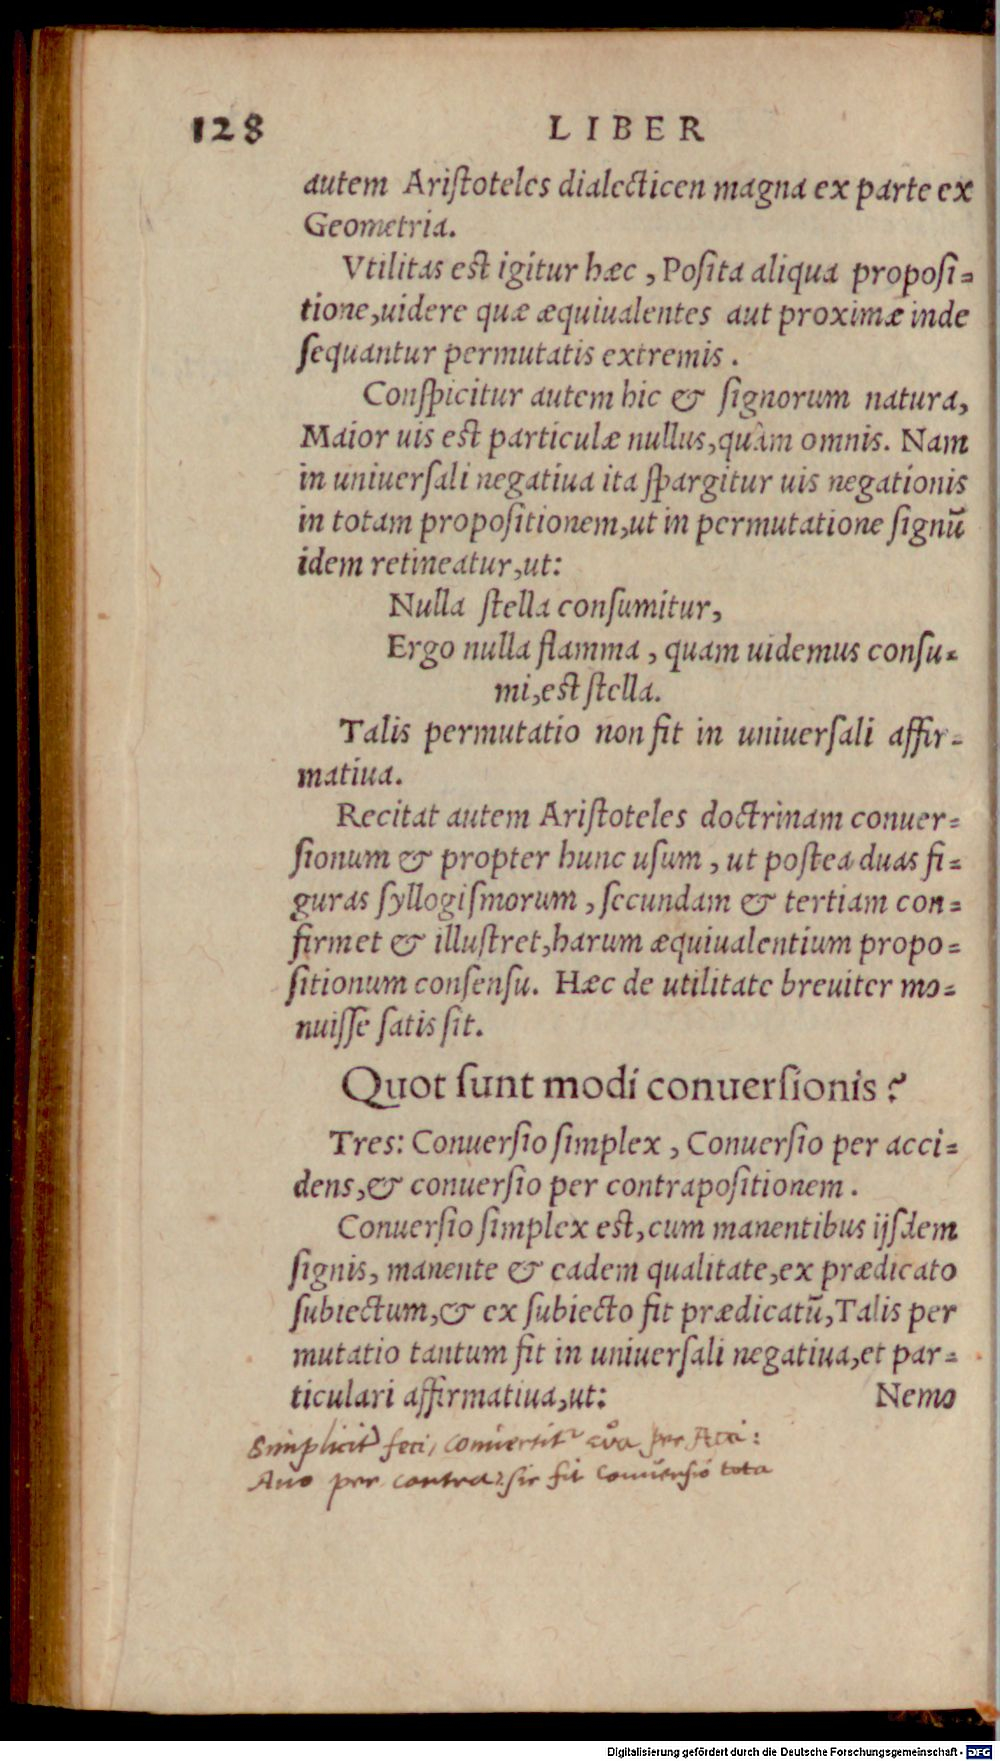 128 LIBER
autem Ariſtoteles dialecticen magna ex parte ex
Geometria.
Vtilitas est igitur hæc, Poſita aliqua propoſi-
tione, uidere quæ æquiualentes aut proximæ inde
ſequantur permutatis extremis.
Conſpicitur autem hic & ſignorum natura,
Maior uis est particulæ nullus, quàm omnis. Nam
in uniuerſali negatiua ita ſpargitur uis negationis
in totam propoſitionem, ut in permutatione ſignū
idem retineatur, ut:
Nulla ſtella conſumitur,
Ergo nulla flamma, quam uidemus conſu-
mi, est ſtella.
Talis permutatio non fit in uniuerſali affir-
matiua.
Recitat autem Ariſtoteles doctrinam conuer-
ſionum & propter hunc uſum, ut poſtea duas fi-
guras ſyllogiſmorum, ſecundam & tertiam con-
firmet & illuſtret, harum æquiualentium propo-
ſitionum conſenſu. Hæc de utilitate breuiter mo-
nuiſſe ſatis ſit.
Quot ſunt modi conuerſionis?
Tres: Conuerſio ſimplex, Conuerſio per acci-
dens, & conuerſio per contrapoſitionem.
Conuerſio ſimplex est, cum manentibus ijſdem
ſignis, manente & eadem qualitate, ex prædicato
ſubiectum, & ex ſubiecto fit prædicatū, Talis per
mutatio tantum fit in uniuerſali negatiua, et par-
ticulari affirmatiua, ut: Nemo
Simplicit feci, convertit eva per Acci:
Aſto per contra: ſic fit Conuerſio tota
Digitalisierung gefördert durch die Deutsche Forschungsgemeinschaft - DFG